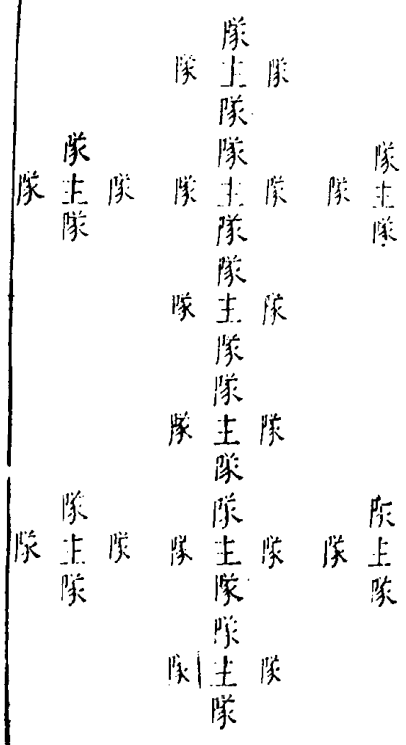 隊
隊 主 隊
隊
隊 隊 隊
隊 主 隊 隊 主 隊 隊 主
隊 隊 隊
隊
隊 主 隊
隊
隊
隊 主 隊
隊
隊 隊 隊
隊 主 隊 隊 主 隊 隊 主
隊 隊 隊
隊
隊 主 隊
隊